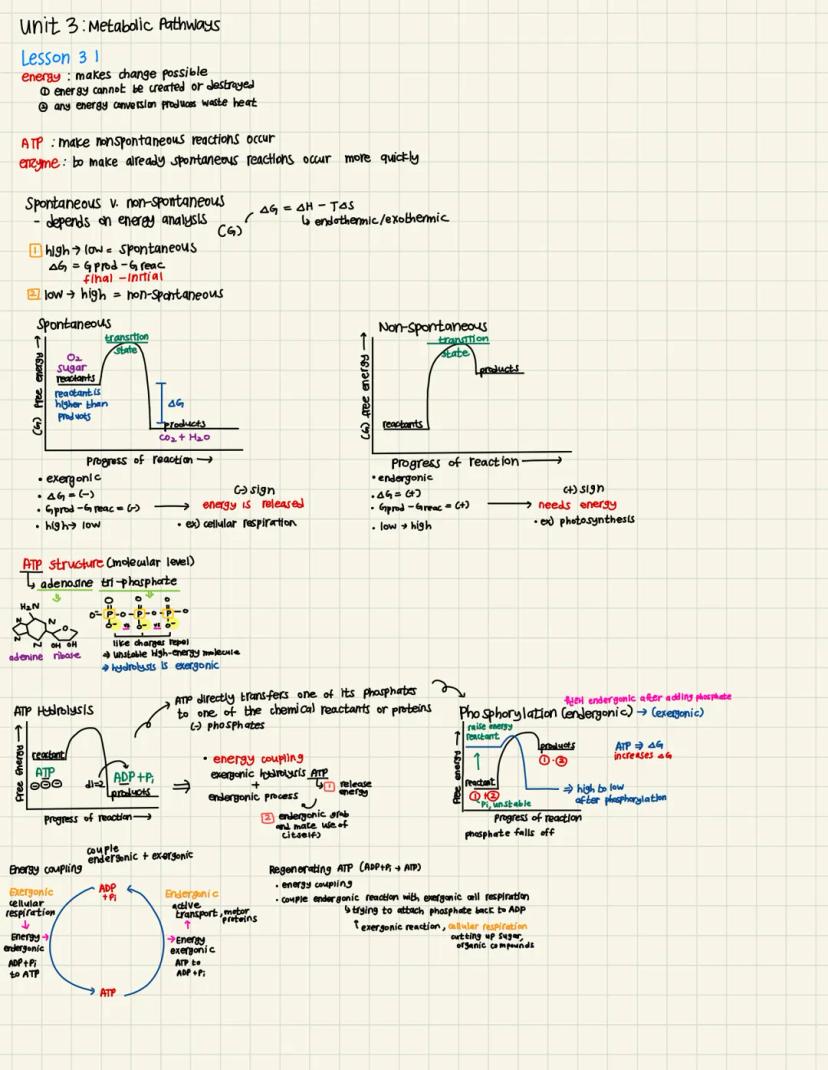 Unit 3: Metabolic Pathways
Lesson 3 1
energy : makes change possible
① energy cannot be created or destroyed
② any energy conversion produces waste heat
ATP : make nonspontaneous reactions occur
enzyme : to make already spontaneous reactions occur more quickly
Spontaneous v. non-spontaneous
- depends on energy analysis
(G)
ΔG = ΔH - TΔS
↳ endothermic/exothermic
1 high → low = spontaneous
ΔG = Gprod - Greac
final - initial
2 low → high = non-spontaneous
Spontaneous
(G) free energy →
transition
state
O2
sugar
reactants
reactant is
higher than
products
ΔG
products
CO2 + H2O
Progress of reaction →
• exergonic
• ΔG = (-)
• Gprod - Greac = (-) →
• high → low
(-) sign
energy is released
• ex) cellular respiration
Non-Spontaneous
(G) free energy →
transition
state
products
reactants
Progress of reaction →
• endergonic
• ΔG = (+)
• Gprod - Greac = (+) →
• low → high
(+) sign
needs energy
• ex) photosynthesis
ATP structure (molecular level)
↳ adenosine tri-phosphate
H2N
N
N
N
N
O
OH OH
adenine ribose
O O O
O⁻ - P - O - P - O - P - O
O⁻ O⁻ O⁻
like charges repel
→ unstable high-energy molecule
→ hydrolysis is exergonic
ATP Hydrolysis
Free Energy →
reactant
ATP
⊖⊖⊖
ADP + Pi
products
Progress of reaction →
ATP directly transfers one of its phosphates
to one of the chemical reactants or proteins
(-) phosphates
⇒
• energy coupling
exergonic hydrolysis ATP
+
endergonic process
1 release
energy
2 endergonic grab
and make use of
(itself)
endergonic after adding phosphate
Phosphorylation (endergonic) → (exergonic)
free energy →
raise energy
reactant
reactant
① + ②
Pi, unstable
products
① - ②
ATP ⇒ ΔG
increases ΔG
⇒ high to low
after phosphorylation
Progress of reaction
phosphate falls off
couple
endergonic + exergonic
Energy coupling
Exergonic
cellular
respiration
↓
Energy →
endergonic
ADP + Pi
to ATP
ADP
+ Pi
ATP
Endergonic
active
transport, motor
proteins
↑
→ Energy
exergonic
ATP to
ADP + Pi
Regenerating ATP (ADP+Pi → ATP)
• energy coupling
• couple endergonic reaction with exergonic cell respiration
↳ trying to attach phosphate back to ADP
↑ exergonic reaction, cellular respiration
cutting up sugar,
organic compounds